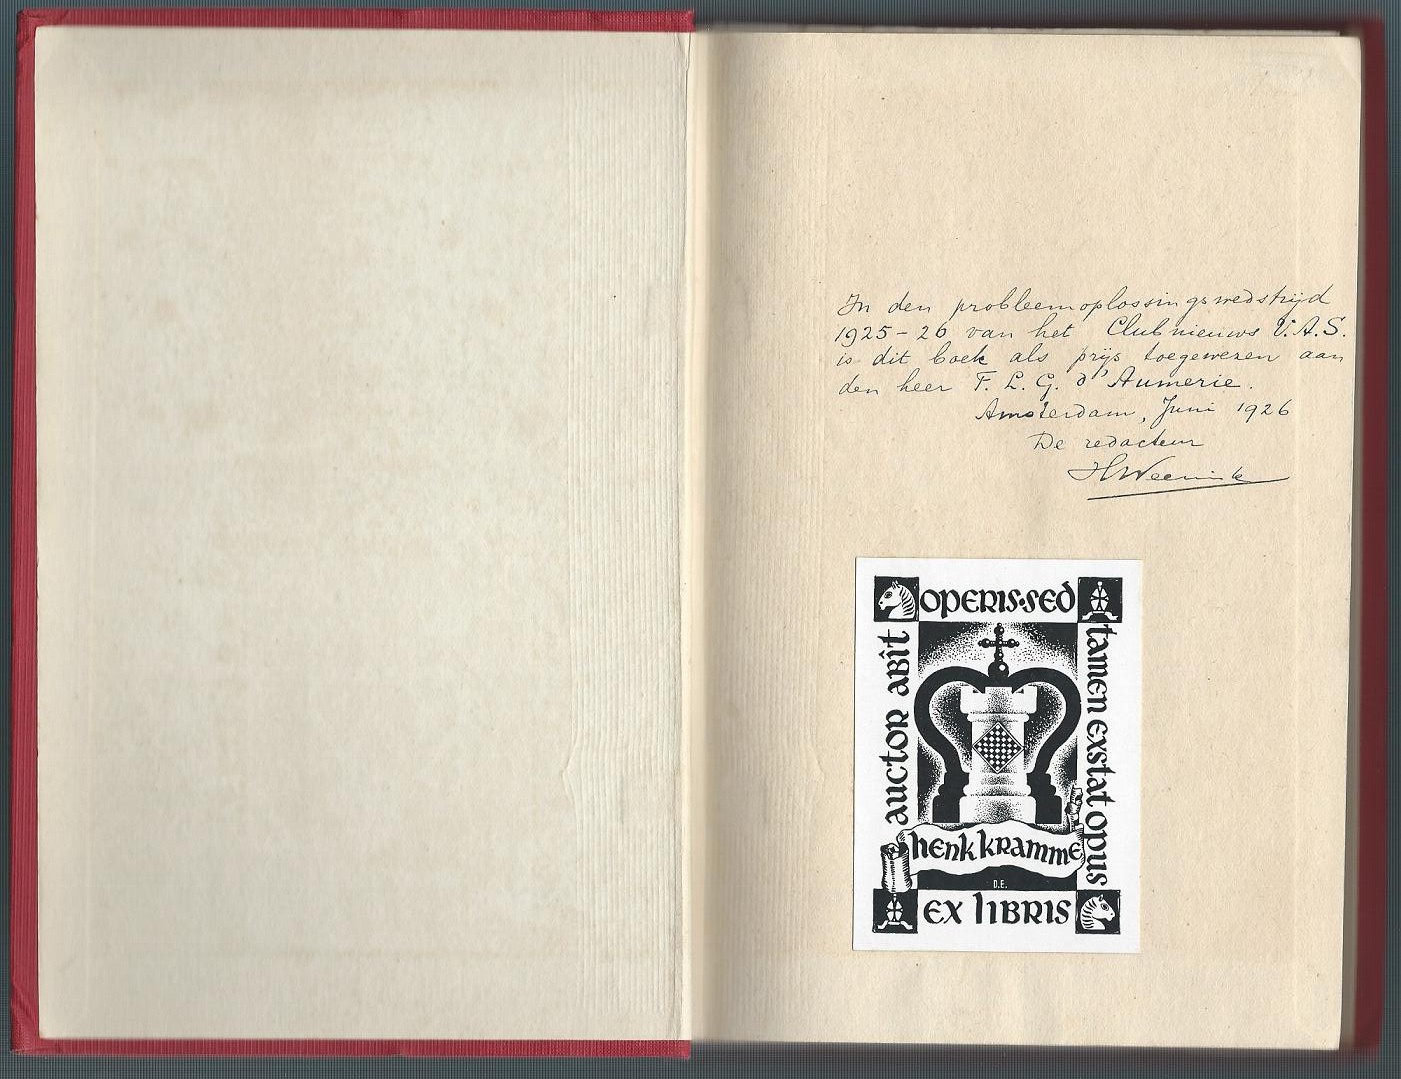 In den probleemoplossingswedstrijd
1925-26 van het Clubnieuws V.A.S.
is dit boek als prijs toegewezen aan
den heer F. L. G. d'Aumerie.
Amsterdam, Juni 1926
De redacteur
HWeenink
auctor abit
operis·sed
tamen exstat opus
henk kramme
D.E.
ex libris